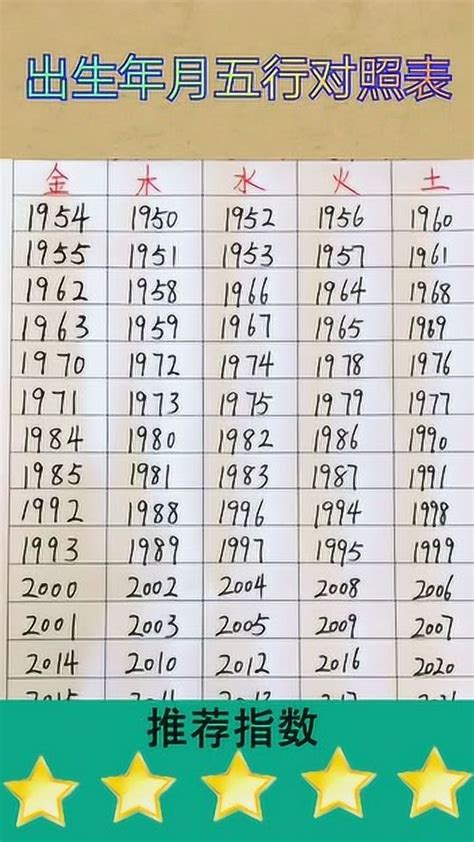 出生年月五行对照表
金 木 水 火 土
1954 1950 1952 1956 1960
1955 1951 1953 1957 1961
1962 1958 1966 1964 1968
1963 1959 1967 1965 1969
1970 1972 1974 1978 1976
1971 1973 1975 1979 1977
1984 1980 1982 1986 1990
1985 1981 1983 1987 1991
1992 1988 1996 1994 1998
1993 1989 1997 1995 1999
2000 2002 2004 2008 2006
2001 2003 2005 2009 2007
2014 2010 2012 2016 2020
推荐指数